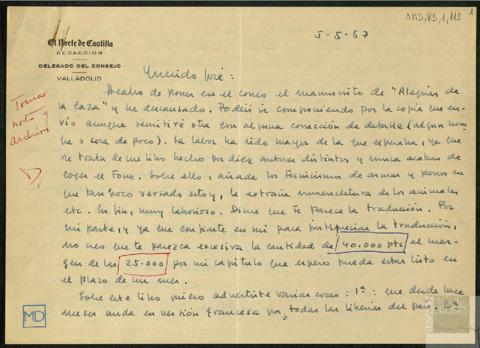 AMD, 85, 1, 113
1
El Norte de Castilla
REDACCION
DELEGADO DEL CONSEJO
VALLADOLID
5-5-67
Tomar
nota y
archivar
Querido José:
Acabo de poner en el correo el manuscrito de "Alegrías de
la caza" y he descansado. Podéis ir componiendo por la copia que en-
vío aunque remitiré otra con alguna corrección de detalle (algún nom-
bre o cosa de poco). La labor ha sido mayor de la que esperaba, ya que
se trata de un libro hecho por diez autores distintos y nunca acabas de
coger el tono. Sobre ello, añade los tecnicismos de armas y perros en
que tan poco versado estoy, la extraña nomenclatura de los animales
etc. En fin, muy laborioso. Dime que te parece la traducción. Por
mi parte, y ya que confiaste en mí para justipreciar la traducción,
no creo que te parezca excesiva la cantidad de 40.000 pts al mar-
gen de las 25.000 por mi capítulo que espero pueda estar listo en
el plazo de un mes.
Sobre este libro quiero advertirte varias cosas: 1ª: que desde hace
meses anda en versión francesa por todas las librerías del país. 2ª
MD